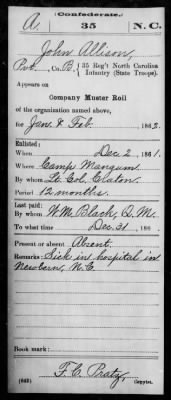 (Confederate.)
A. 35 N.C.
John Allison,
Pvt., Co. B, 35 Reg't North Carolina
Infantry (State Troops).
Appears on
Company Muster Roll
of the organization named above,
for Jan. & Feb. 1862.
Enlisted:
When Dec 2, 1861.
Where Camp Mangum
By whom Lt. Col. Craton.
Period 12 months.
Last paid:
By whom W. M. Black, Q. M.
To what time Dec. 31, 186 .
Present or absent Absent.
Remarks: Sick in hospital in
Newbern, N.C.
Book mark:
F. C. Pratz,
(642) Copyist.